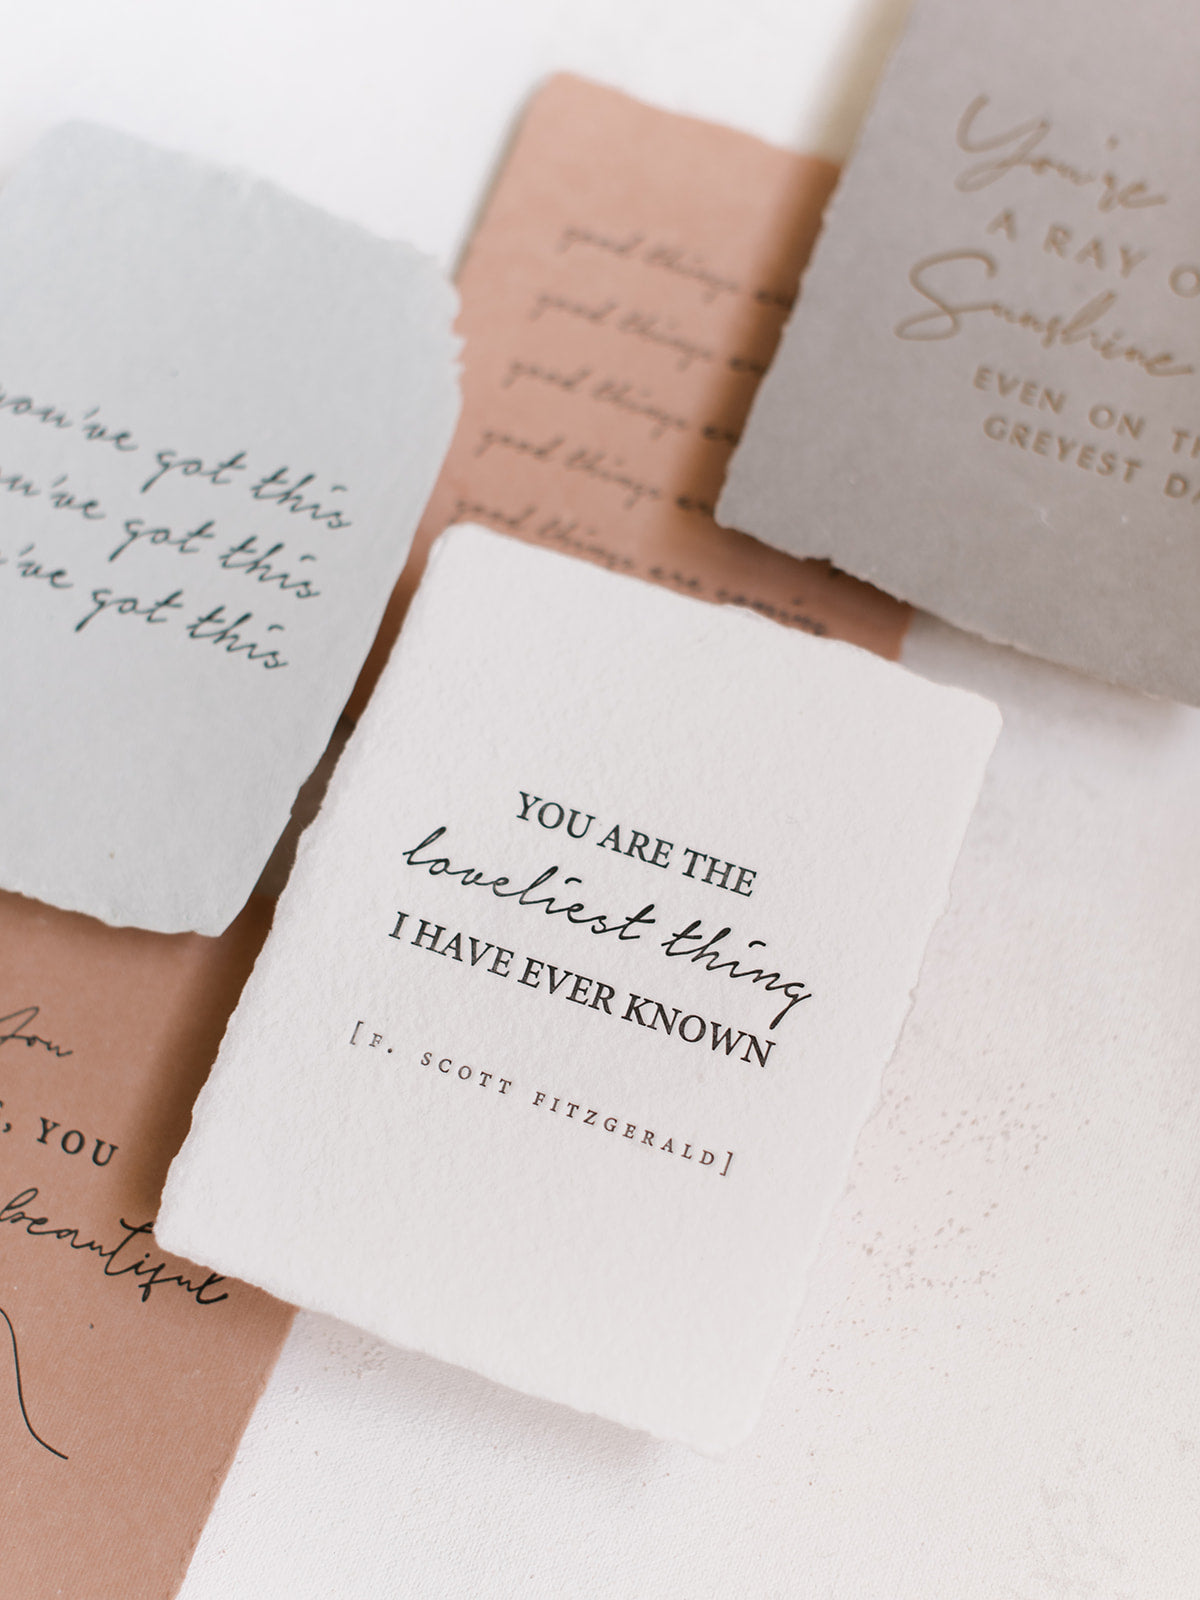 You're
A RAY O
Sunshine
EVEN ON TH
GREYEST DA
good things
good things
good things
good things
good things are coming
you've got this
you've got this
've got this
YOU ARE THE
loveliest thing
I HAVE EVER KNOWN
[F. SCOTT FITZGERALD]
You
, YOU
beautiful